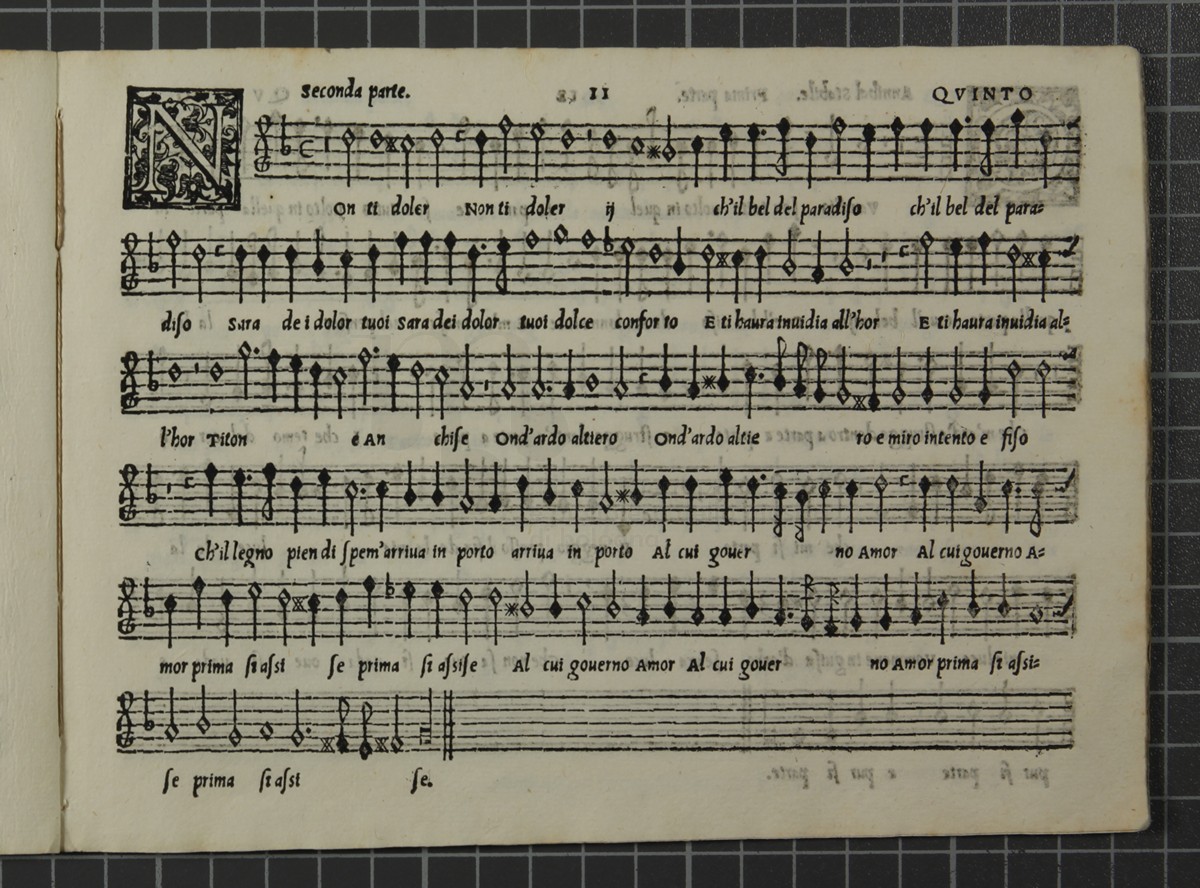 Seconda parte. 11 QVINTO
NOn ti doler Non ti doler ij ch'il bel del paradiso ch'il bel del para=
diso Sara de i dolor tuoi Sara dei dolor tuoi dolce conforto E ti haura inuidia all'hor E ti haura inuidia al=
l'hor Titon e An chise Ond'ardo altiero Ond'ardo altie ro e miro intento e fiso
Ch'il legno pien di spem'arriua in porto arriua in porto Al cui gouer no Amor Al cui gouerno A=
mor prima si assi se prima si assise Al cui gouerno Amor Al cui gouer no Amor prima si assi=
se prima si assi se.